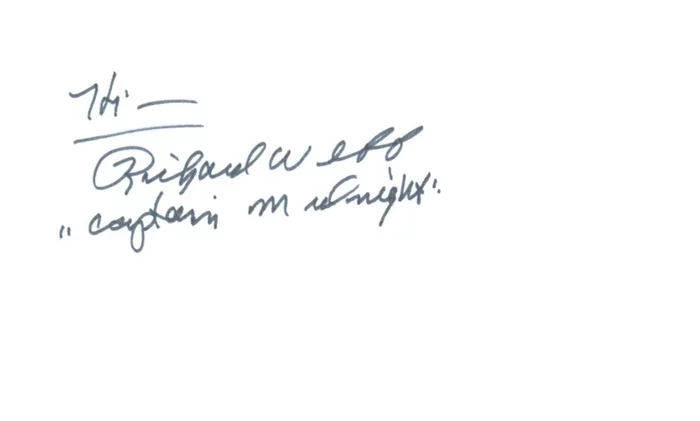 Hi —
Richard Webb
"Captain Midnight"